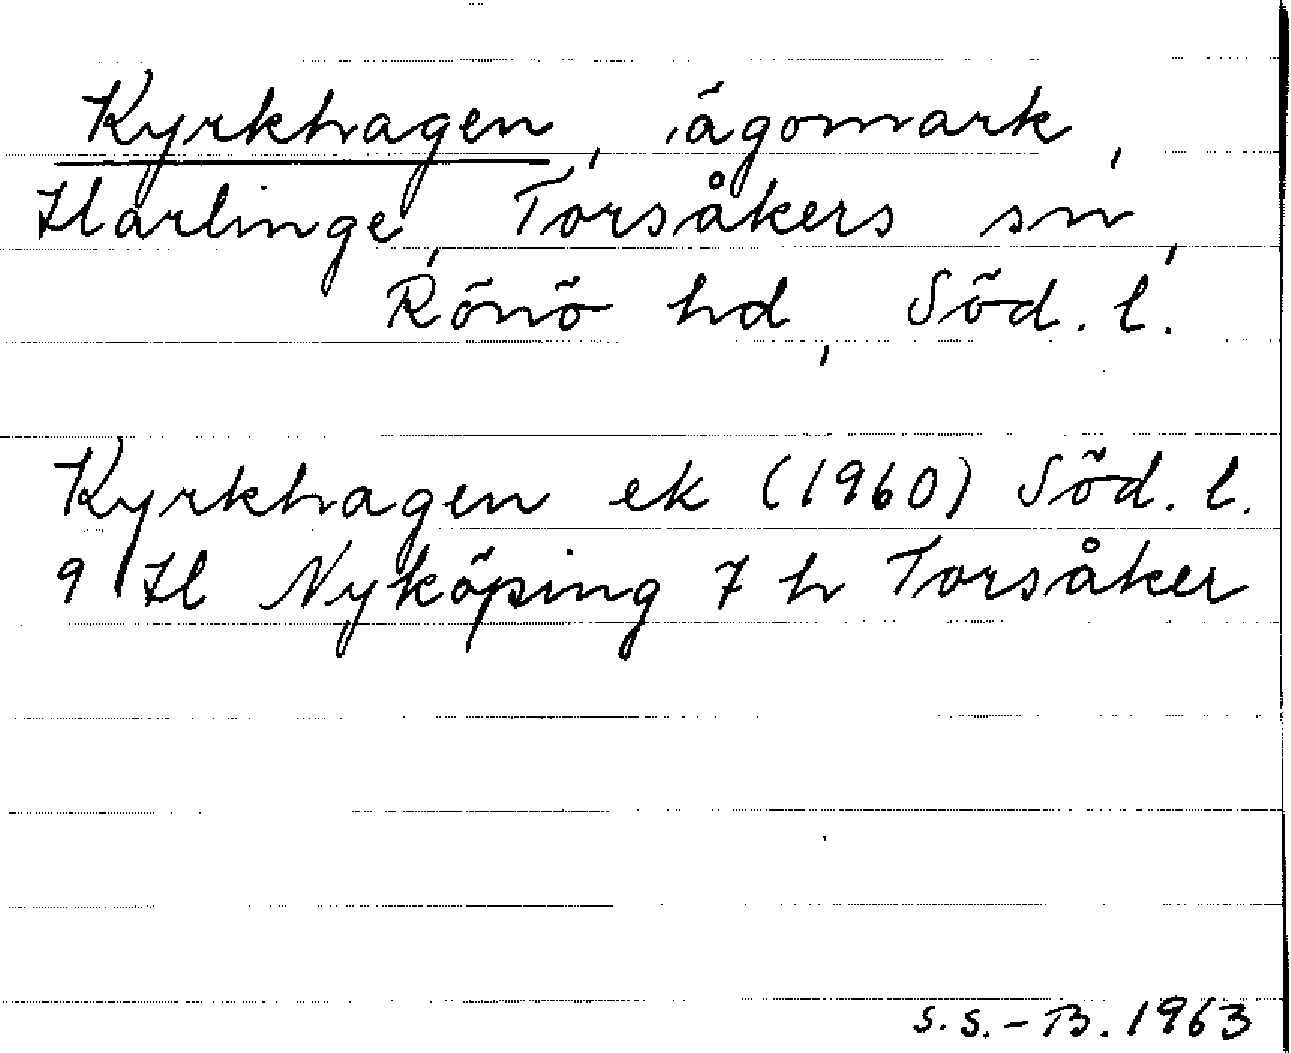 Kyrkhagen, ägomark,
Harlinge, Torsåkers sn,
Rönö hd, Söd. l.
Kyrkhagen ek (1960) Söd. l.
9 H Nyköping 7 h Torsåker
S.S.-B. 1963